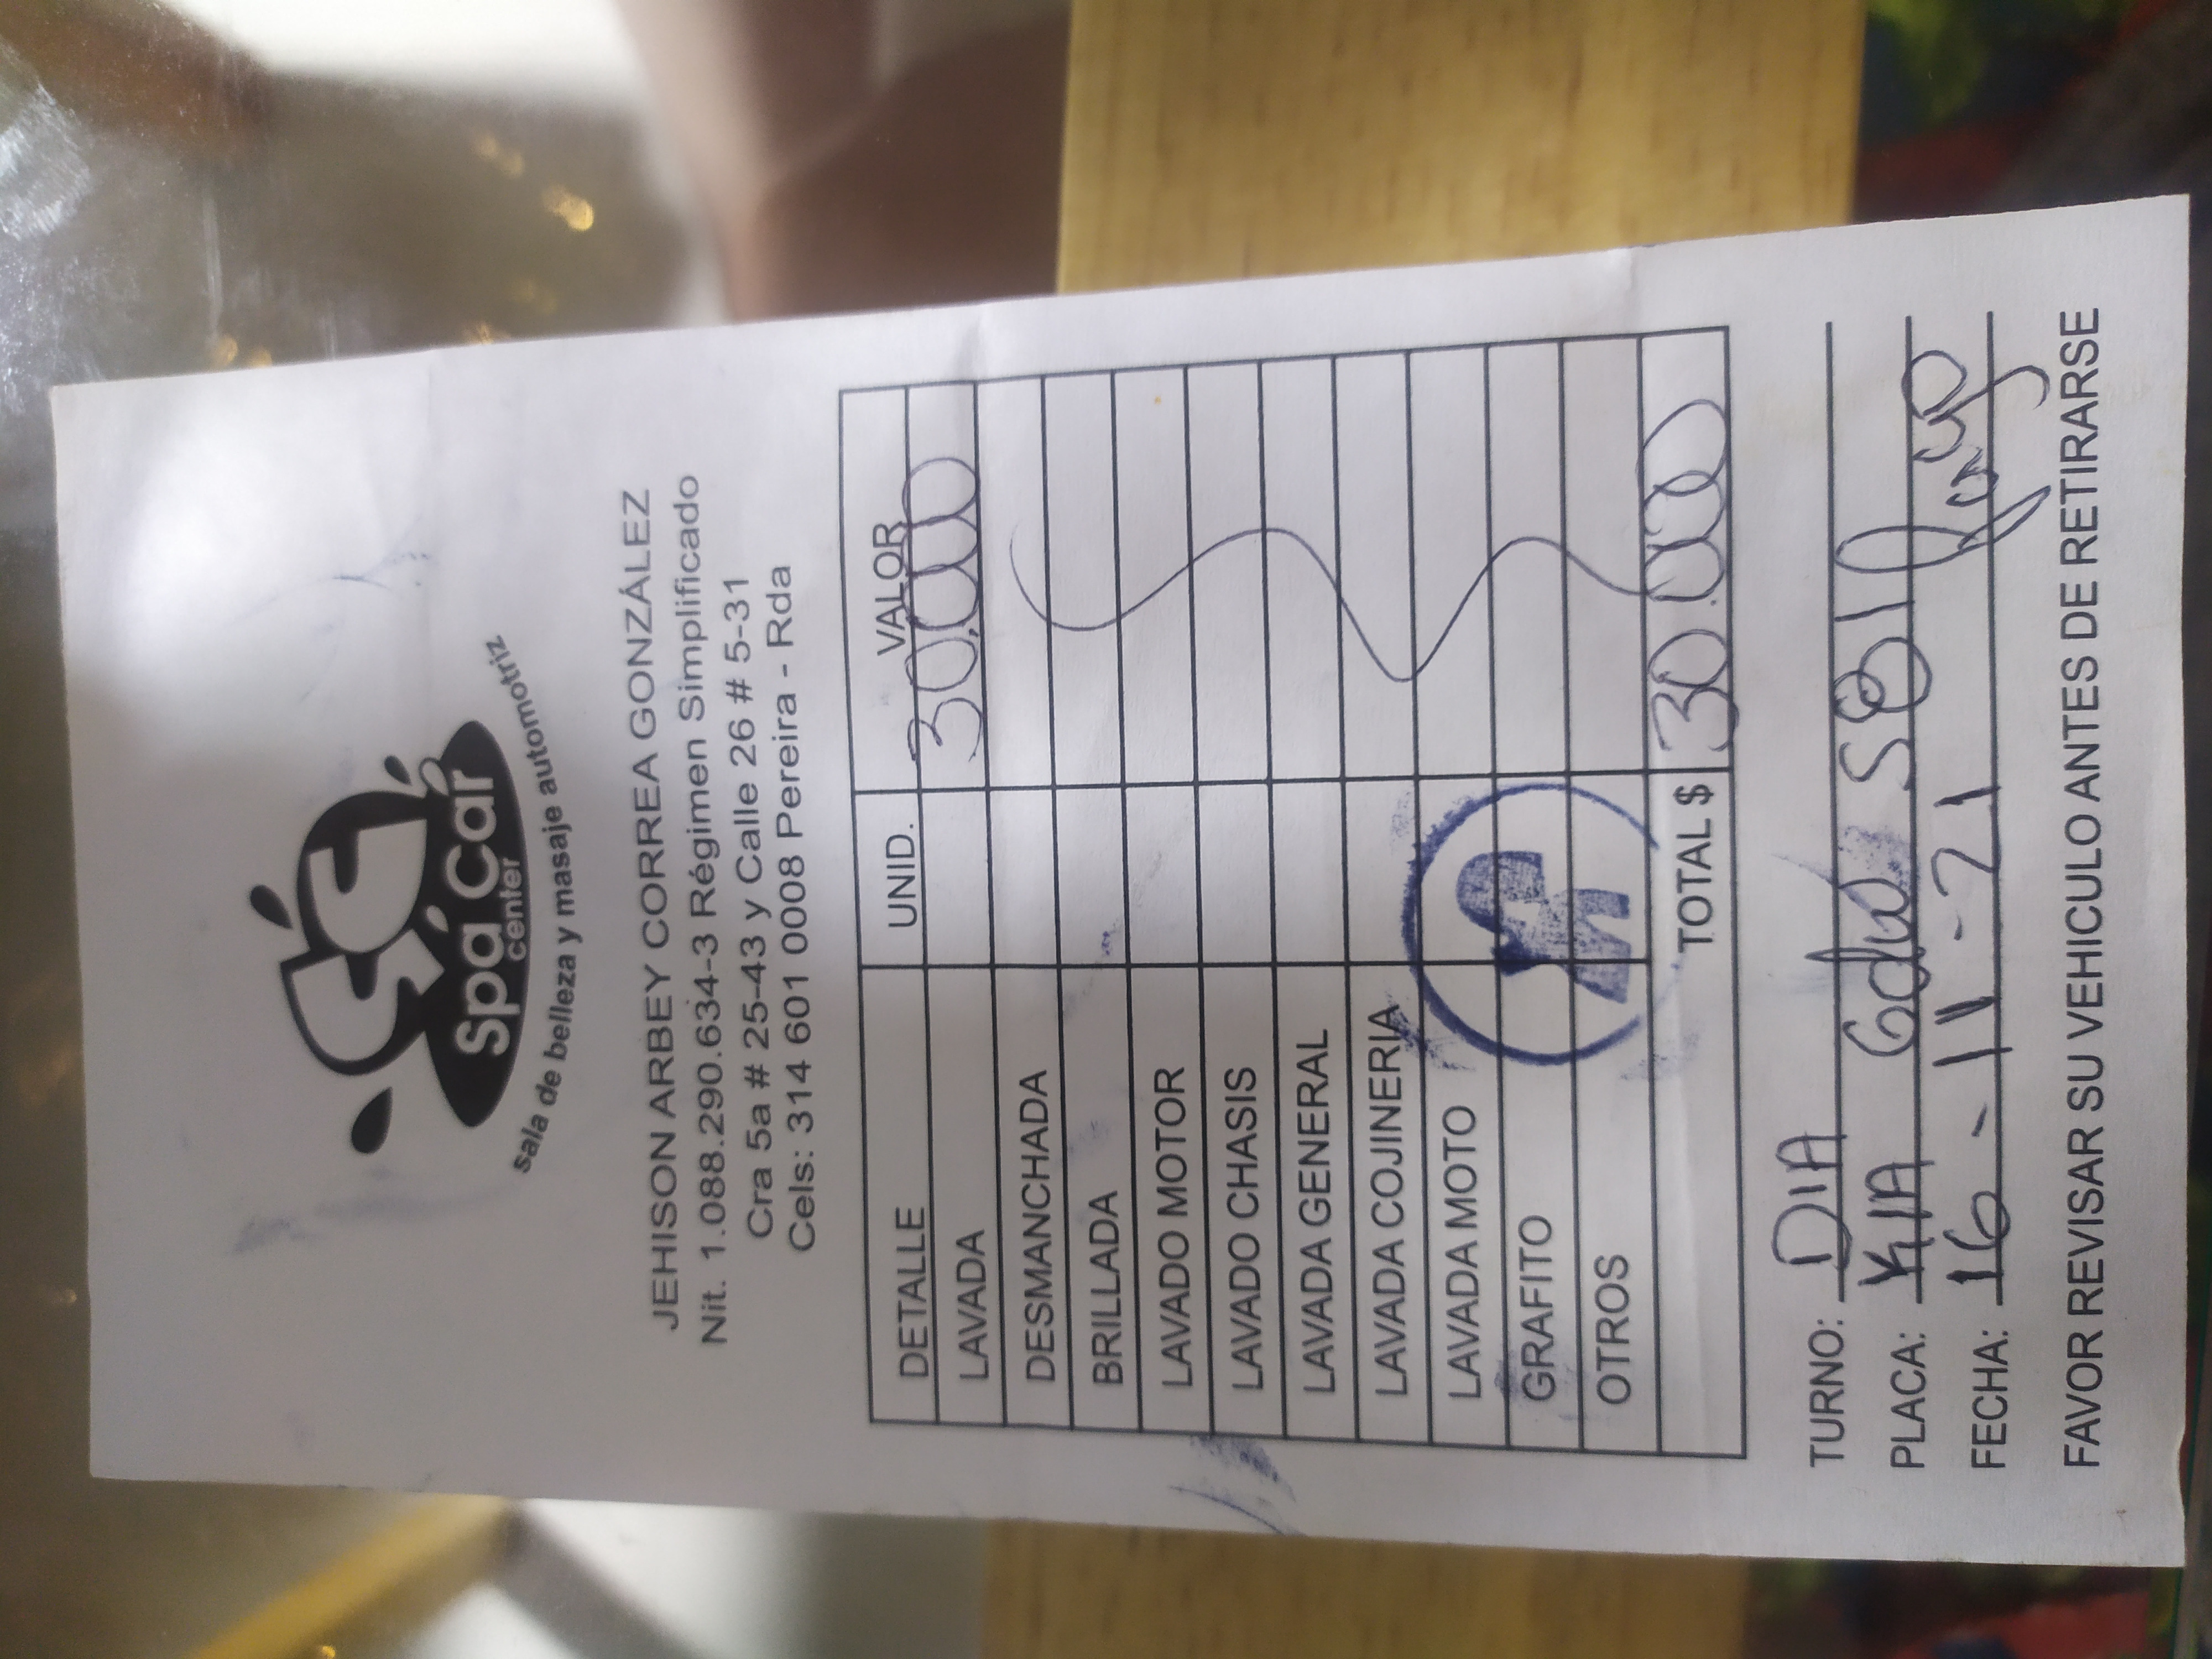 Spa Car
center
sala de belleza y masaje automotriz
JEHISON ARBEY CORREA GONZÁLEZ
Nit. 1.088.290.634-3 Régimen Simplificado
Cra 5a # 25-43 y Calle 26 # 5-31
Cels: 314 601 0008 Pereira - Rda
DETALLE UNID. VALOR
LAVADA 30,000
DESMANCHADA
BRILLADA
LAVADO MOTOR
LAVADO CHASIS
LAVADA GENERAL
LAVADA COJINERIA
LAVADA MOTO
GRAFITO
OTROS
TOTAL $ 30.000
TURNO: DIA
PLACA: KIA
FECHA: 16-11-21
FAVOR REVISAR SU VEHICULO ANTES DE RETIRARSE